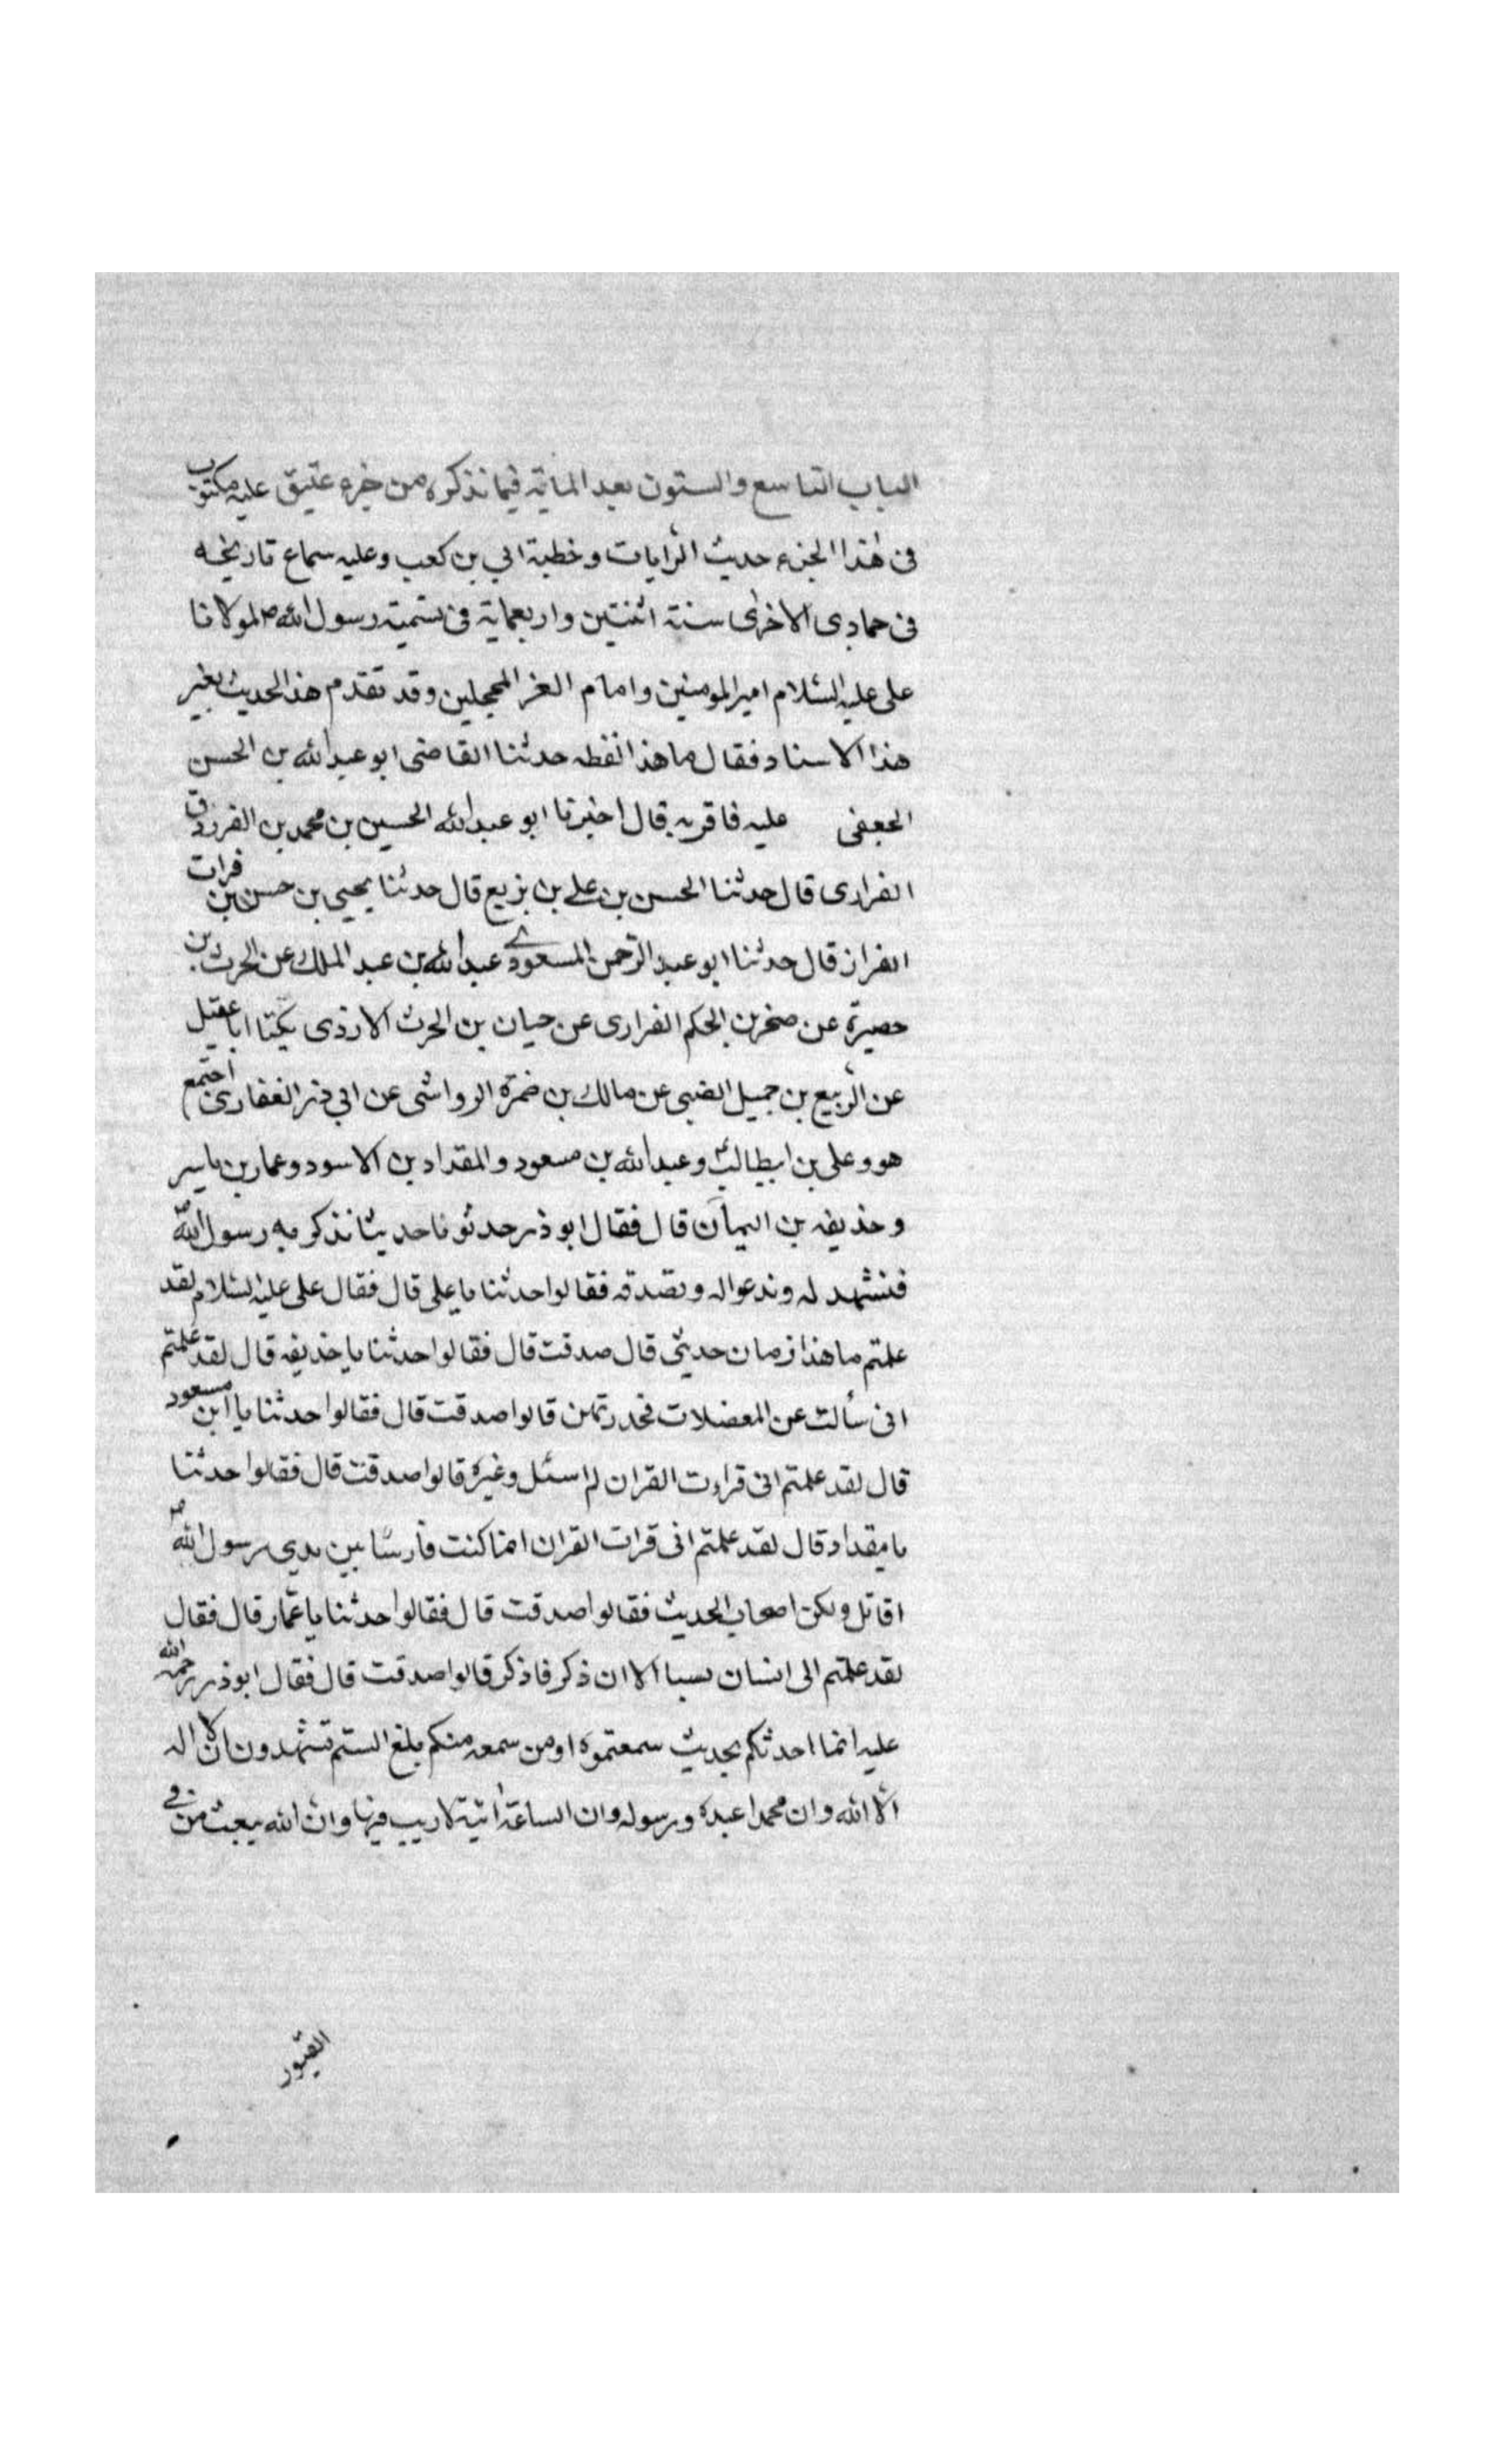 الباب التاسع والستون بعد الماية فيما نذكره من جزء عتيق عليه مكتوب
فى هذا الجزء حديث الرايات وخطبة ابي بن كعب وعليه سماع تاريخه
فى جمادى الاخرى سنة اثنتين واربعماية فى تسمية رسول الله ص لمولانا
على عليه السلام امير المومنين وامام الغر المحجلين وقد تقدم هذا الحديث بغير
هذا الاسناد فقال ما هذا لفظه حدثنا القاضى ابو عبد الله بن الحسن
الجعفى عليه فاقر به قال اخبرنا ابو عبد الله الحسين بن محمد بن الفرزدق
الفزارى قال حدثنا الحسن بن على بن بزيع قال حدثنا يحيى بن حسن بن فرات
الفراز قال حدثنا ابو عبد الرحمن المسعودي عبد الله بن عبد الملك عن الحرث بن
حصيرة عن صخر بن الحكم الفرارى عن حيان بن الحرث الازدى يكنا ابا عقيل
عن الربيع بن جميل الضبى عن مالك بن ضمرة الرواشى عن ابي ذر الغفارى اجتمع
هو وعلى بن ابيطالب ع وعبد الله بن مسعود والمقداد بن الاسود وعمار بن ياسر
وحذيفه بن اليمان قال فقال ابو ذر حدثونا حديثا نذكر به رسول الله ص
فنشهد له وندعوا له ونصدقه فقالوا حدثنا يا على قال فقال على عليه السلام لقد
علمتم ما هذا زمان حديثى قال صدقت قال فقالوا حدثنا يا حذيفه قال لقد علمتم
انى سألت عن المعضلات فحذرتهن قالوا صدقت قال فقالوا حدثنا يا ابن مسعود
قال لقد علمتم انى قراءت القران لم اسئل وغيره قالوا صدقت قال فقالوا حدثنا
يا مقداد قال لقد علمتم انى قرات القران انما كنت فارسا بين يدي رسول الله ص
اقاتل ولكن اصحاب الحديث فقالوا صدقت قال فقالوا حدثنا يا عمار قال فقال
لقد علمتم الى انسان نسيا الا ان ذكر فاذكر قالوا صدقت قال فقال ابو ذر رحمة الله
عليه انما احدثكم بحديث سمعتموه او من سمعه منكم بلغ الستم تشهدون ان لا اله
الا الله وان محمدا عبده ورسوله وان الساعة اتية لا ريب فيها وان الله يبعث من في
القبور